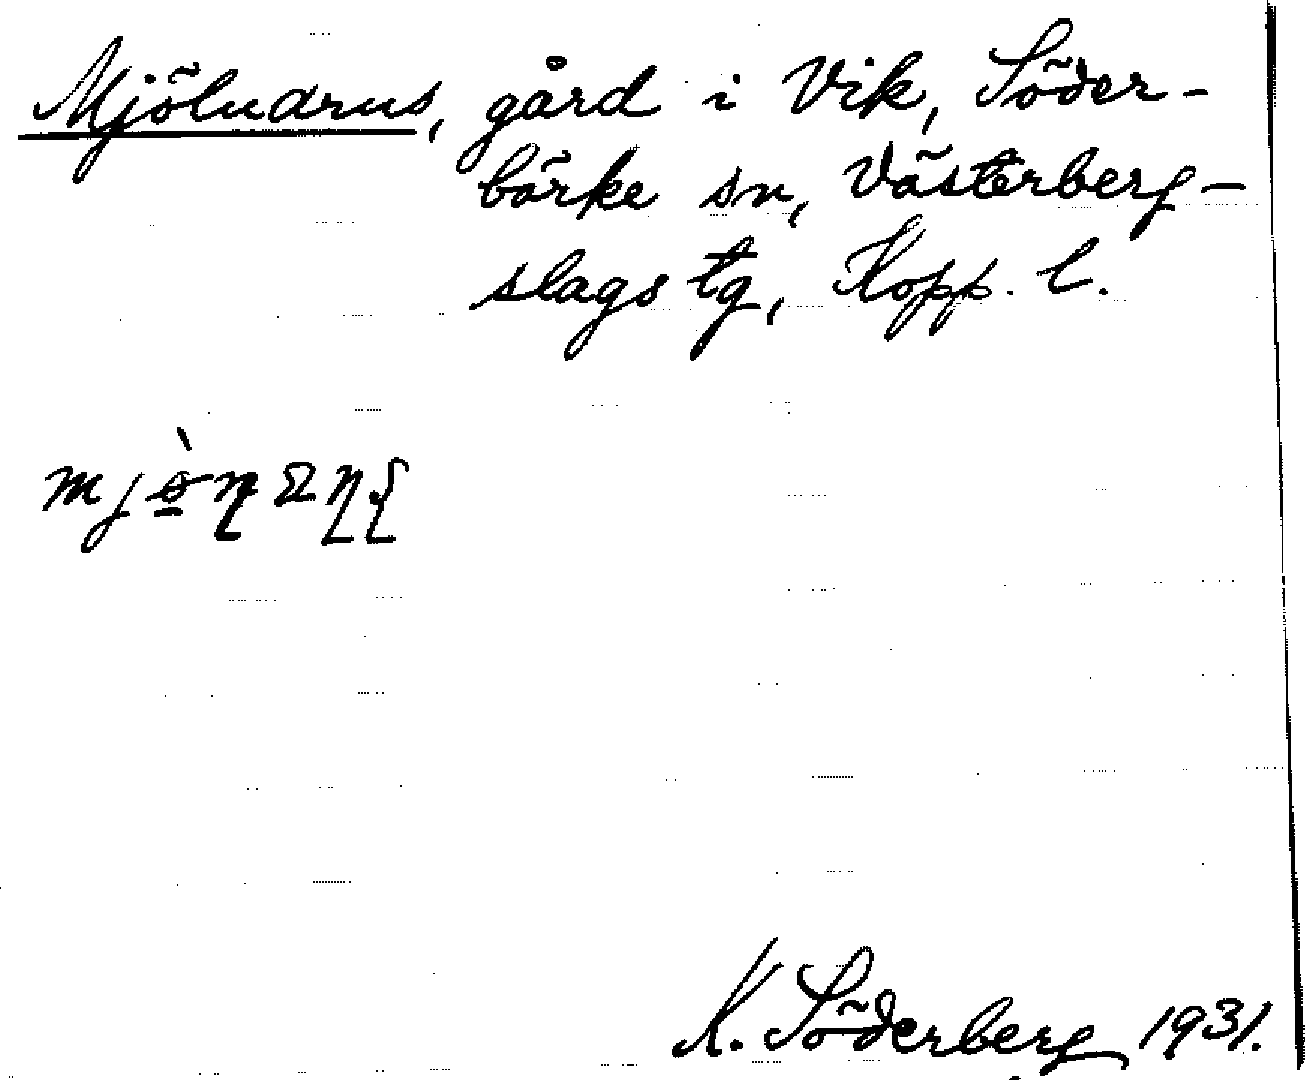 Mjöludrus, gård i Vik, Söder-
bärke sn, Västerberg-
slags tg, Kopp. l.
K. Söderberg 1931.